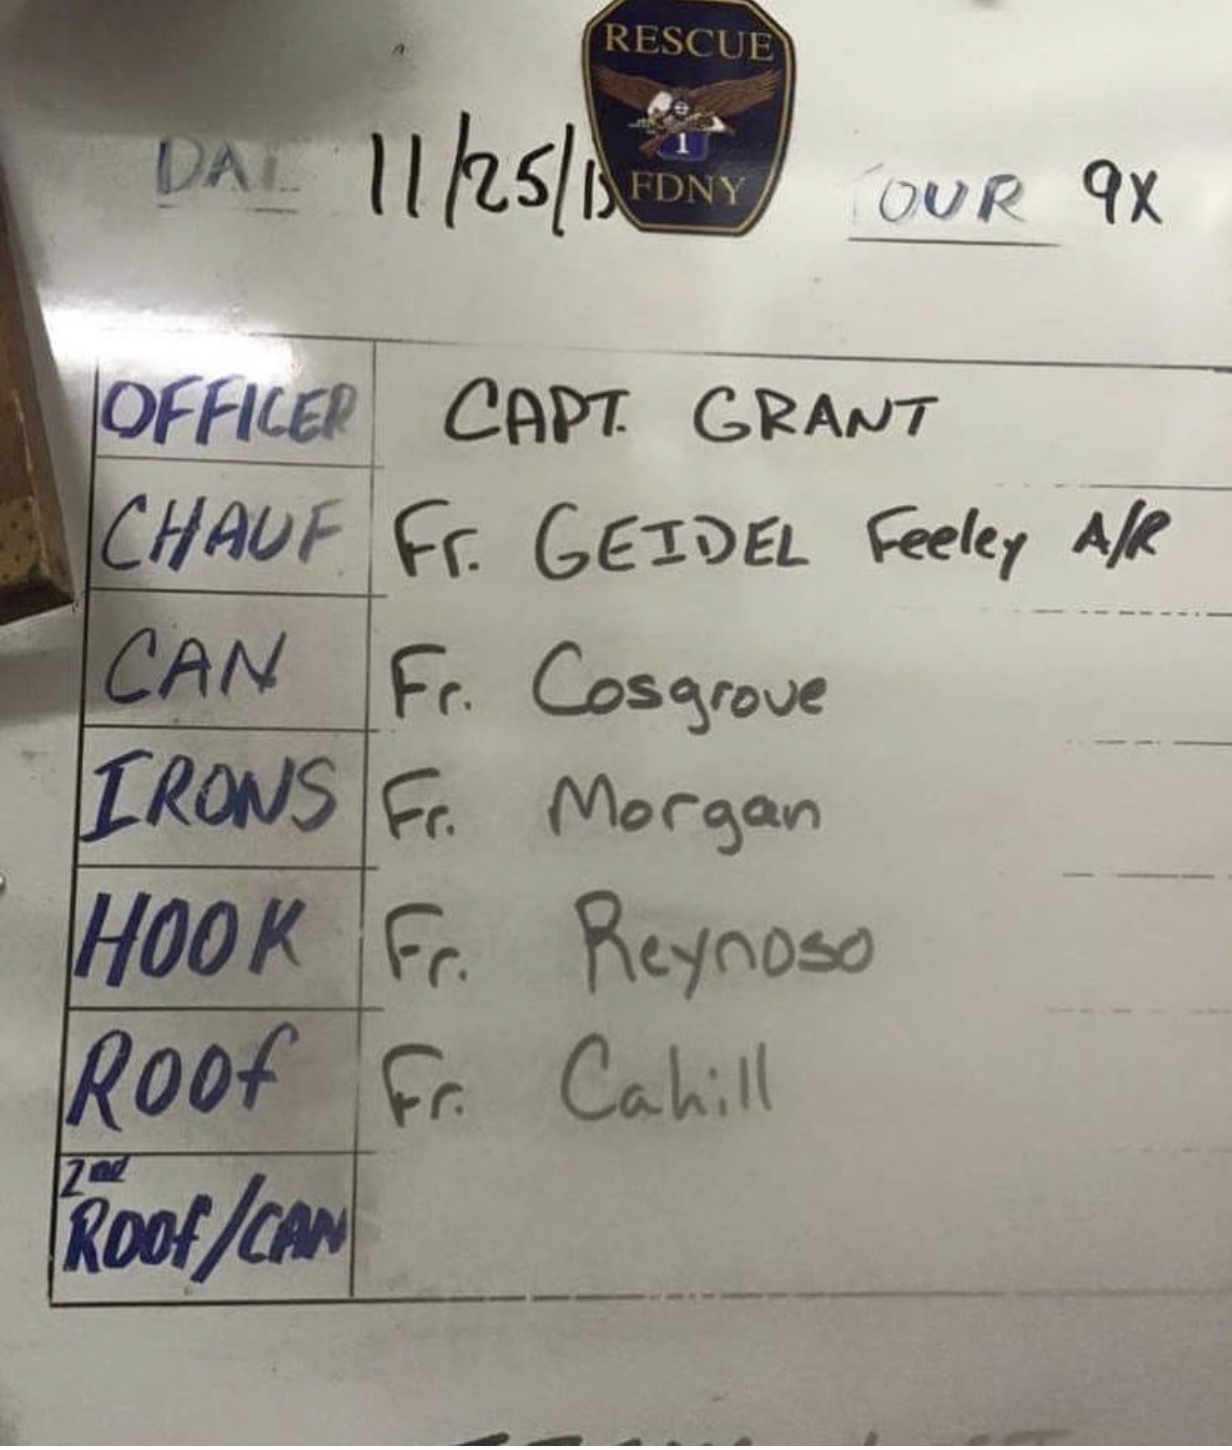 RESCUE
1
FDNY
11/25/1
TOUR 9X
OFFICER CAPT. GRANT
CHAUF Fr. GEIDEL Feeley A/R
CAN Fr. Cosgrove
IRONS Fr. Morgan
HOOK Fr. Reynoso
ROOf Fr. Cahill
2nd
ROOf/CAN